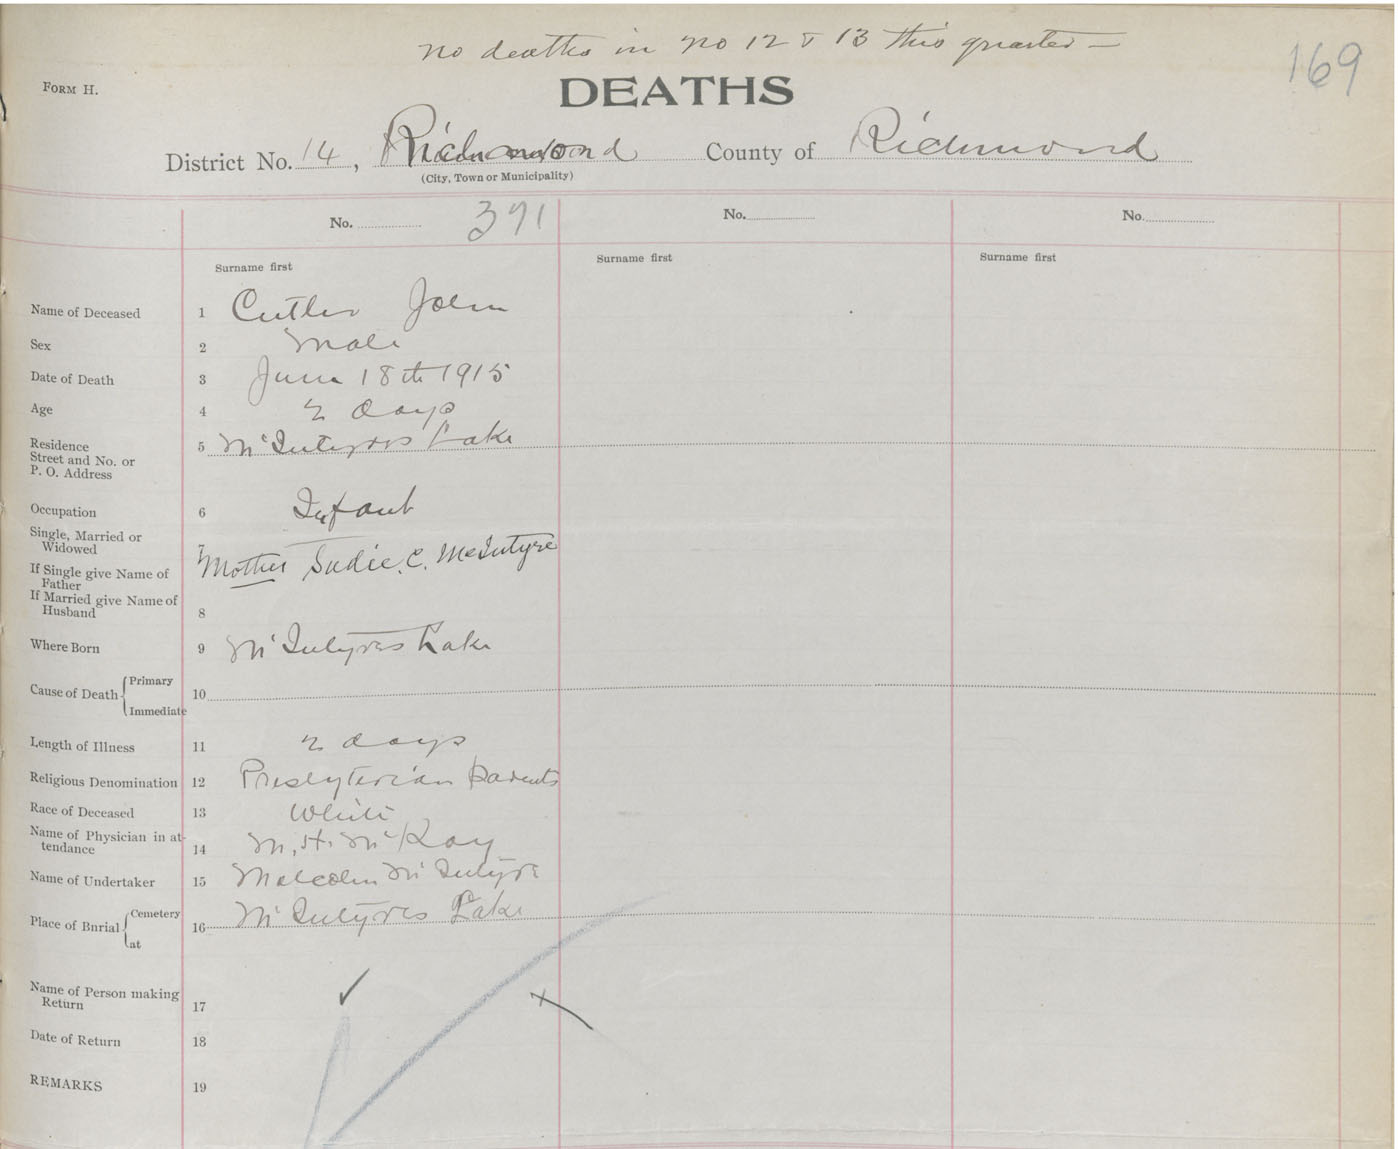 No deaths in No 12 & 13 this quarter —
169
FORM H.
DEATHS
District No. 14, Richmond County of Richmond
(City, Town or Municipality)
No. 371 No. No.
Surname first Surname first Surname first
Name of Deceased 1 Cutler John
Sex 2 Male
Date of Death 3 June 18th 1915
Age 4 2 days
Residence 5 McIntyres Lake
Street and No. or
P. O. Address
Occupation 6 Infant
Single, Married or
Widowed 7
Mother Sadie. C. McIntyre
If Single give Name of
Father
If Married give Name of
Husband 8
Where Born 9 McIntyres Lake
Cause of Death { Primary
10
Immediate
Length of Illness 11 2 days
Religious Denomination 12 Presbyterian Parents
Race of Deceased 13 White
Name of Physician in at-
tendance 14 M. H. McKay
Name of Undertaker 15 Malcolm McIntyre
Place of Burial { Cemetery 16 McIntyres Lake
at
Name of Person making
Return 17
Date of Return 18
REMARKS 19